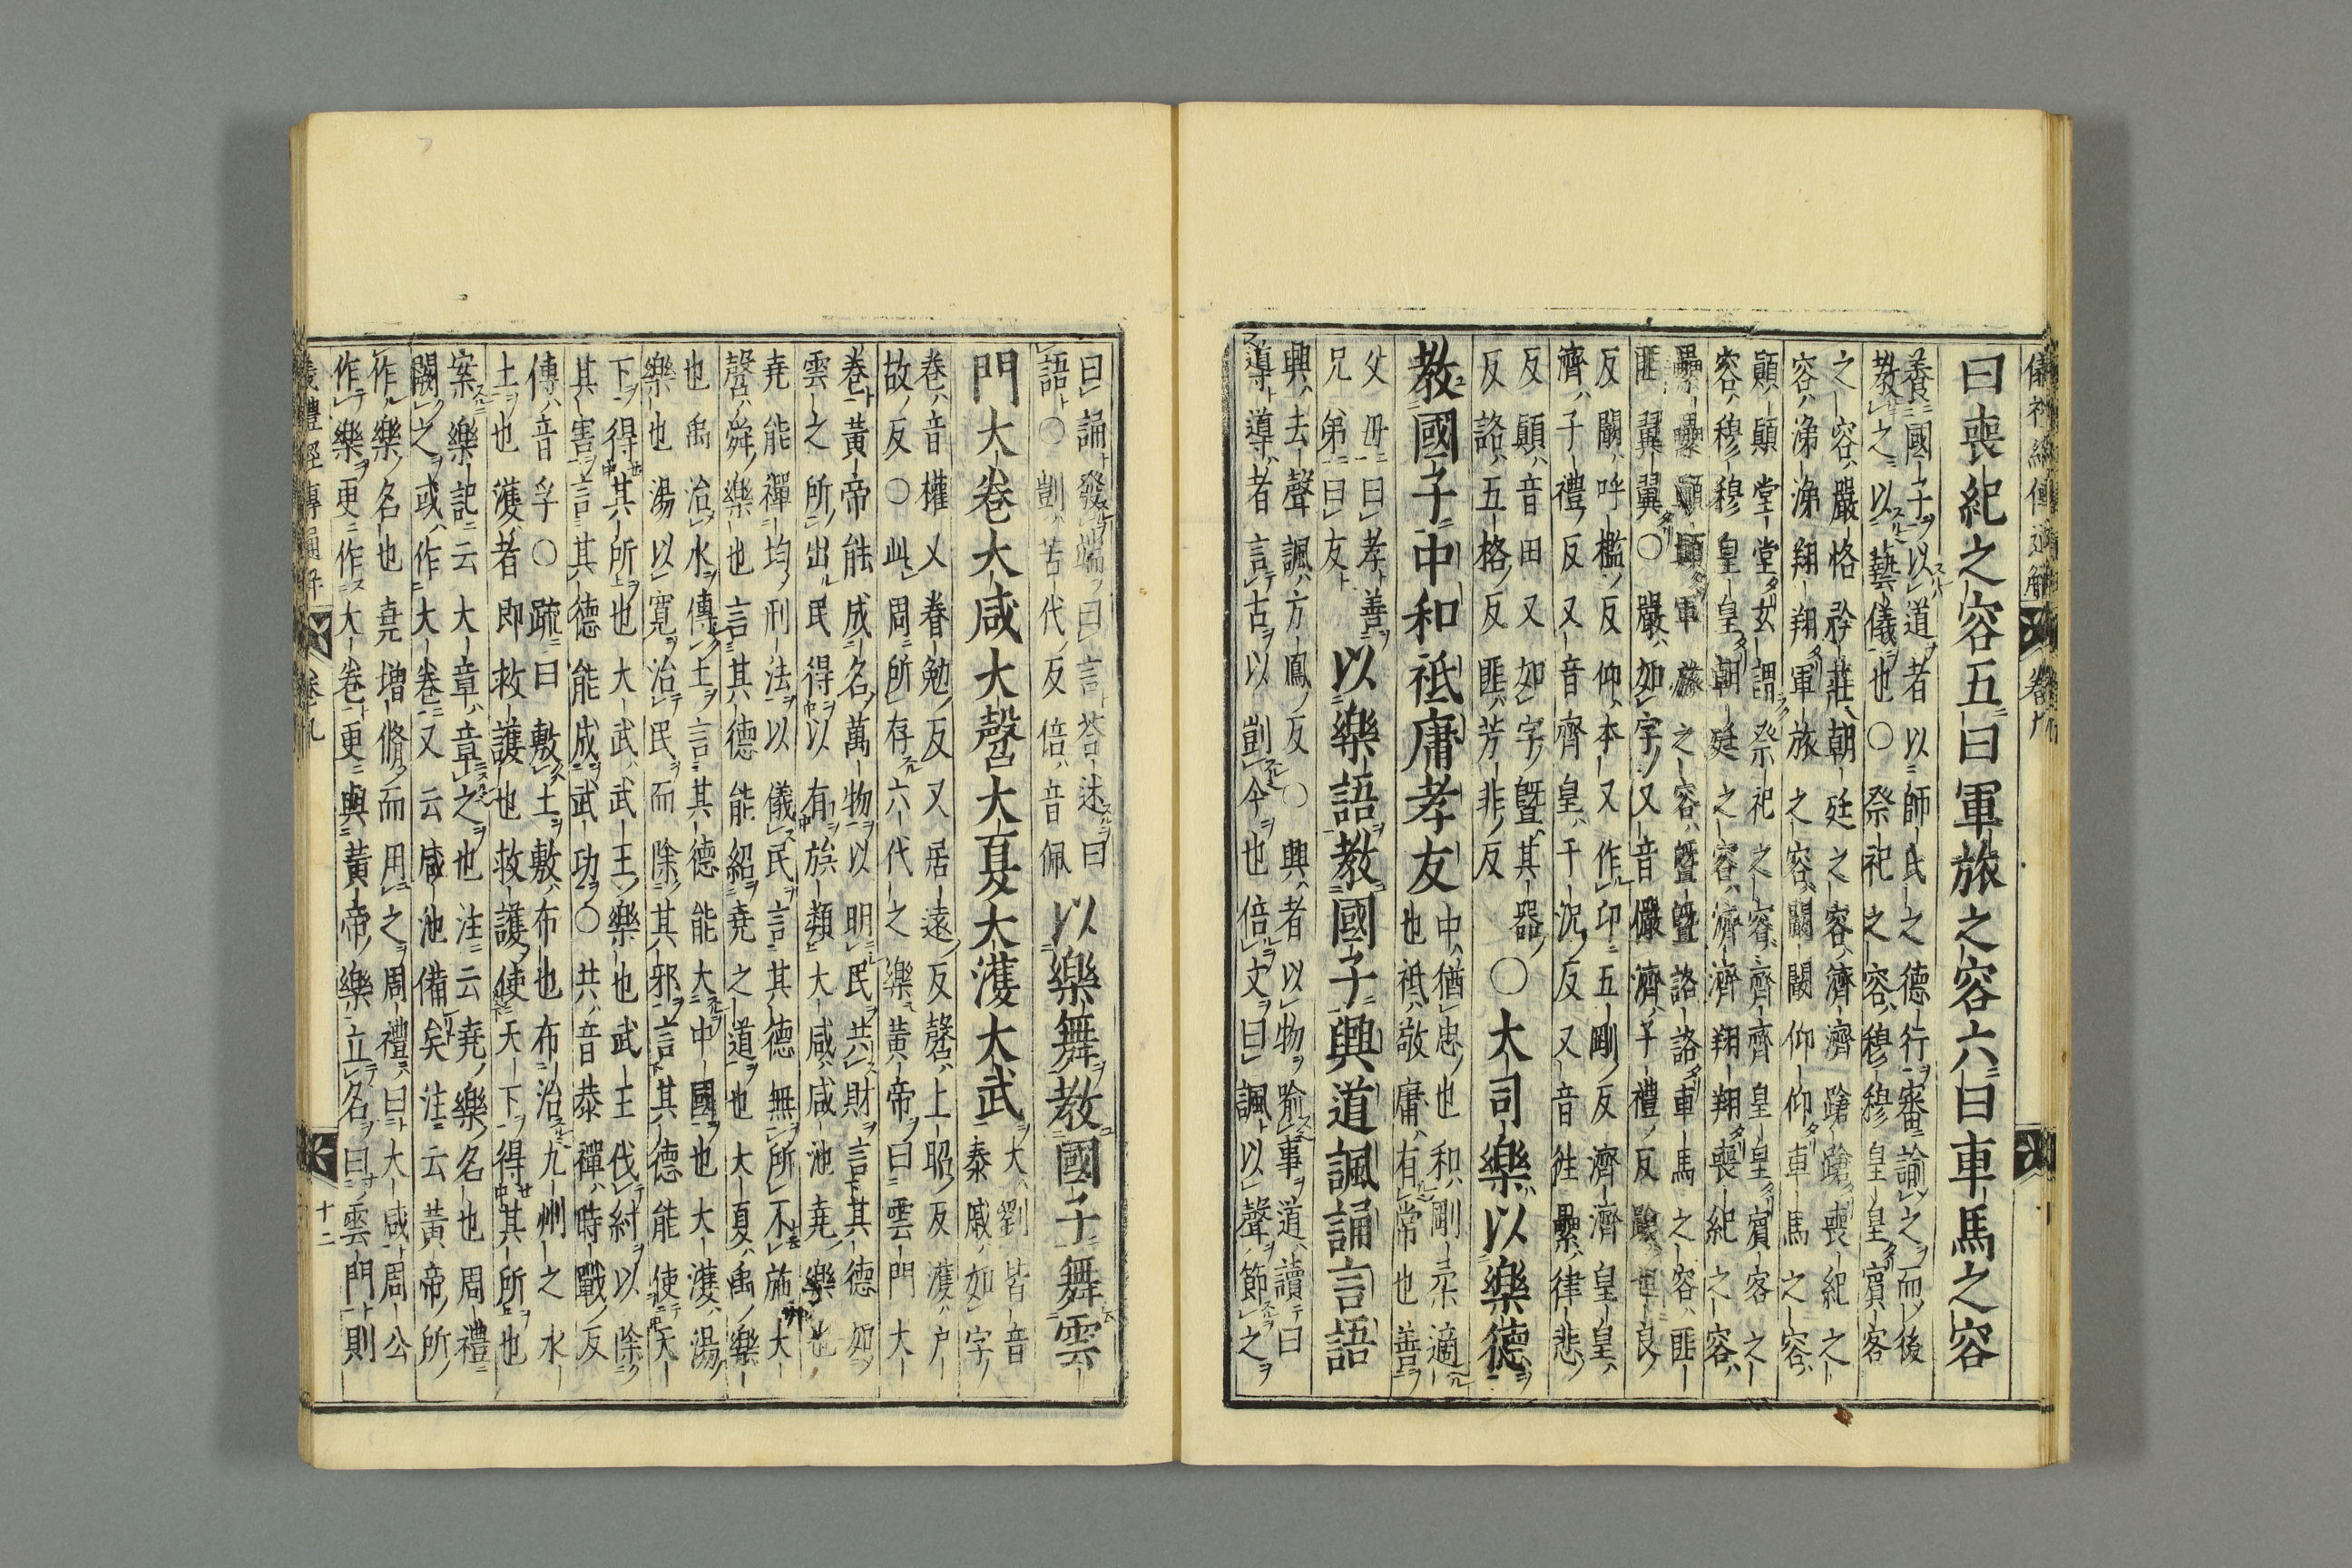 儀禮經傳通解 卷九
曰喪紀之容五曰軍旅之容六曰車馬之容
養國子以道者以師氏之德行審諭之而後
教之以藝儀也○祭祀之容穆穆皇皇賓客
之容嚴恪矜莊朝廷之容濟濟蹌蹌喪紀之
容涕涕翔翔軍旅之容闞闞仰仰車馬之容
顚顚堂堂玄謂祭祀之容齊齊皇皇賓客之
容穆穆皇皇朝廷之容濟濟翔翔喪紀之容
纍纍顚顚軍旅之容暨暨詻詻車馬之容匪
匪翼翼○嚴如字又音儼濟子禮反蹌七良
反闞呼檻反仰本又作卬五剛反濟濟皇皇
濟子禮反又音齊皇于況反又音徃纍律悲
反顚音田又如字暨其器
反詻五格反匪芳非反
○大司樂以樂德
教國子中和祗庸孝友
中猶忠也和剛柔適
也祗敬庸有常也善
父母曰孝善
兄弟曰友
以樂語教國子興道諷誦言語
興去聲諷方鳳反○興者以物喻事道讀曰
導導者言古以剴今也倍文曰諷以聲節之
曰誦發端曰言荅述曰
語○剴苦代反倍音佩
以樂舞教國子舞雲
門大卷大咸大㲈大夏大濩大武
大劉皆音
泰戚如字
卷音權又眷勉反又居遠反㲈上昭反濩户
故反○此周所存六代之樂黃帝曰雲門大
卷黃帝能成名萬物以明民共財言其德如
雲之所出民得以有族類大咸咸池堯樂也
堯能禪均刑法以儀民言其德無所不施大
㲈舜樂也言其德能紹堯之道也大夏禹樂
也禹治水傳土言其德能大中國也大濩湯
樂也湯以寬治民而除其邪言其德能使天
下得其所也大武武王樂也武王伐紂以除
其害言其德能成武功○共音恭禪時戰反
傳音孚○疏曰敷土敷布也布治九州之水
土也濩者即救護也救護使天下得其所也
案樂記云大章章之也注云堯樂名也周禮
闕之或作大卷又云咸池備矣注云黃帝所
作樂名也堯增脩而用之周禮曰大咸周公
作樂更作大卷更與黃帝樂立名曰雲門則
儀禮經傳通解 卷九 十二